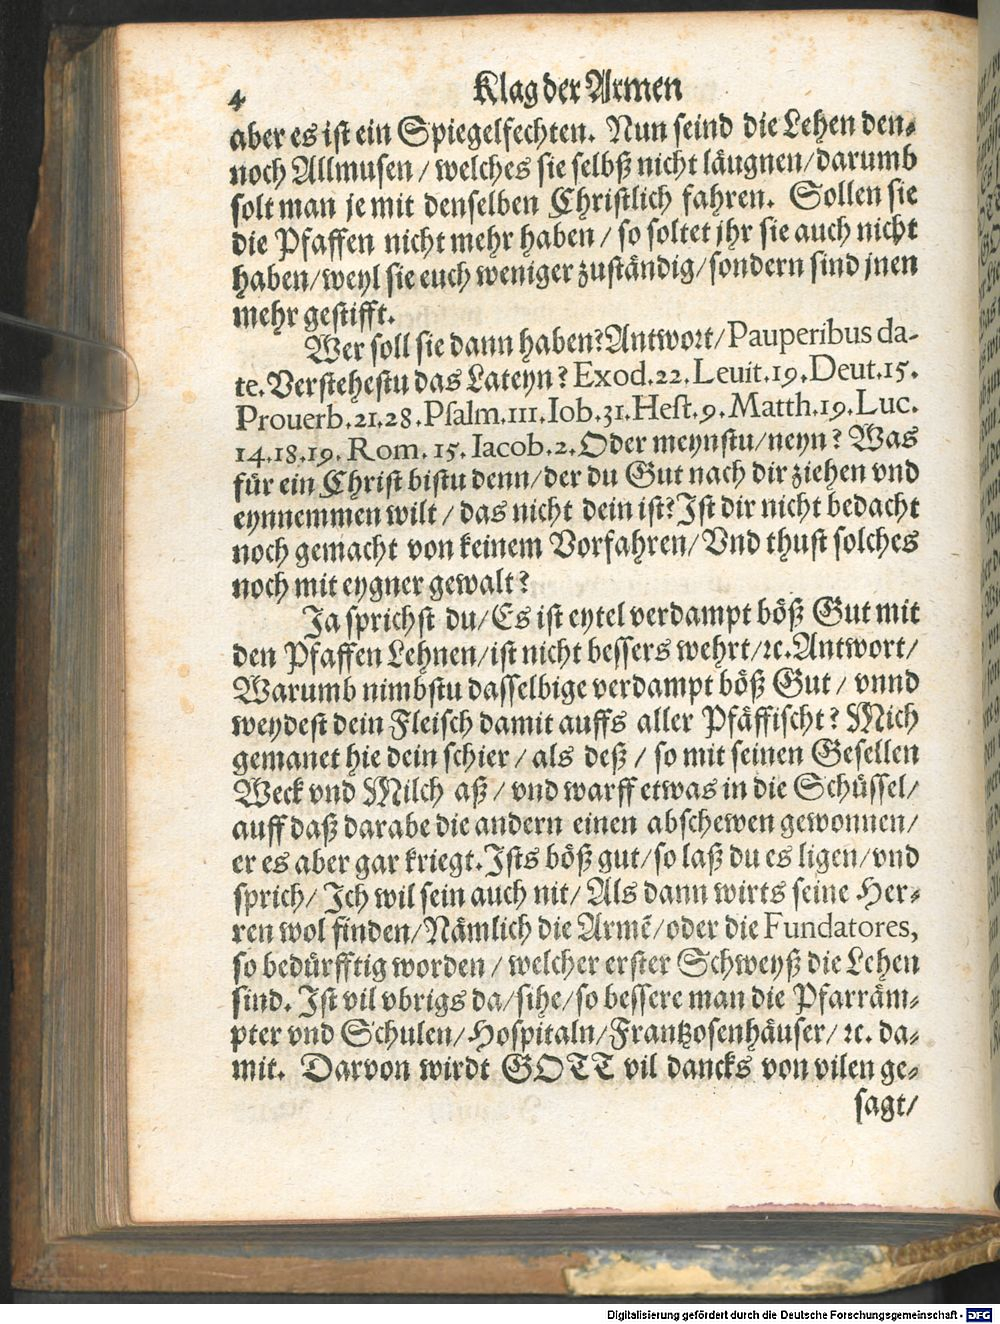 4 Klag der Armen
aber es ist ein Spiegelfechten. Nun seind die Lehen den-
noch Allmusen / welches sie selbß nicht läugnen/darumb
solt man je mit denselben Christlich fahren. Sollen sie
die Pfaffen nicht mehr haben / so soltet jhr sie auch nicht
haben/weyl sie euch weniger zuständig/sondern sind jnen
mehr gestifft.
Wer soll sie dann haben?Antwort/Pauperibus da-
te.Verstehestu das Lateyn? Exod.22.Leuit.19.Deut.15.
Prouerb.21.28.Psalm.111.Iob.31.Hest.9.Matth.19.Luc.
14.18.19.Rom.15.Iacob.2.Oder meynstu/neyn? Was
für ein Christ bistu denn/der du Gut nach dir ziehen vnd
eynnemmen wilt / das nicht dein ist?Ist dir nicht bedacht
noch gemacht von keinem Vorfahren/Vnd thust solches
noch mit eygner gewalt?
Ja sprichst du/Es ist eytel verdampt böß Gut mit
den Pfaffen Lehnen/ist nicht bessers wehrt/ꝛc.Antwort/
Warumb nimbstu dasselbige verdampt böß Gut / vnnd
weydest dein Fleisch damit auffs aller Pfäffischt? Mich
gemanet hie dein schier / als deß / so mit seinen Gesellen
Weck vnd Milch aß / vnd warff etwas in die Schüssel/
auff daß darabe die andern einen abschewen gewonnen/
er es aber gar kriegt.Ists böß gut/so laß du es ligen/vnd
sprich/ Ich wil sein auch nit/ Als dann wirts seine Her-
ren wol finden/Nämlich die Armẽ/oder die Fundatores,
so bedürfftig worden / welcher erster Schweyß die Lehen
sind. Ist vil vbrigs da/sihe/so bessere man die Pfarräm-
pter vnd Schulen/Hospitaln/Frantzosenhäuser/ꝛc. da-
mit. Darvon wirdt GOTT vil dancks von vilen ge-
sagt/
Digitalisierung gefördert durch die Deutsche Forschungsgemeinschaft - DFG